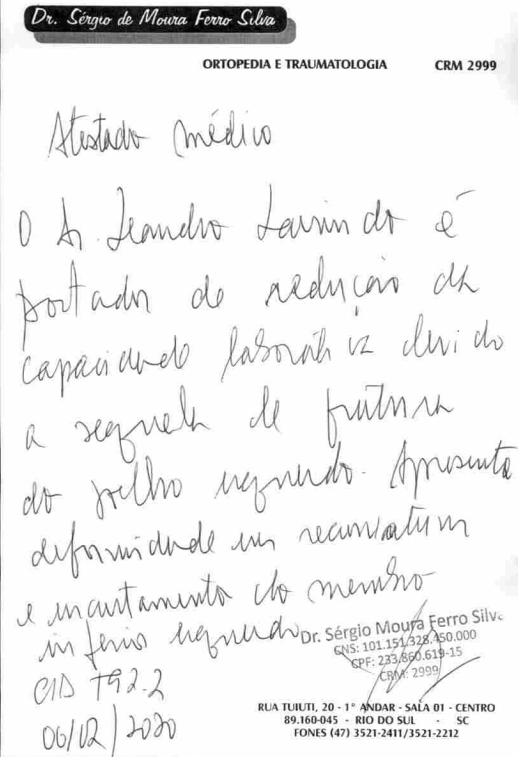 Dr. Sérgio de Moura Ferro Silva
ORTOPEDIA E TRAUMATOLOGIA CRM 2999
Atestado médico
O Sr. Leandro Laurindo é
portador de redução da
capacidade laborátiva devido
a sequela de fratura
do joelho esquerdo. Apresenta
deformidade em recurvatum
e encurtamento do membro
inferior esquerdo
Dr. Sérgio Moura Ferro Silva
CNS: 101.151.328.450.000
CPF: 233.860.619-15
CRM: 2999
CID T92.2
06/02/2020
RUA TUIUTI, 20 - 1° ANDAR - SALA 01 - CENTRO
89.160-045 - RIO DO SUL - SC
FONES (47) 3521-2411/3521-2212